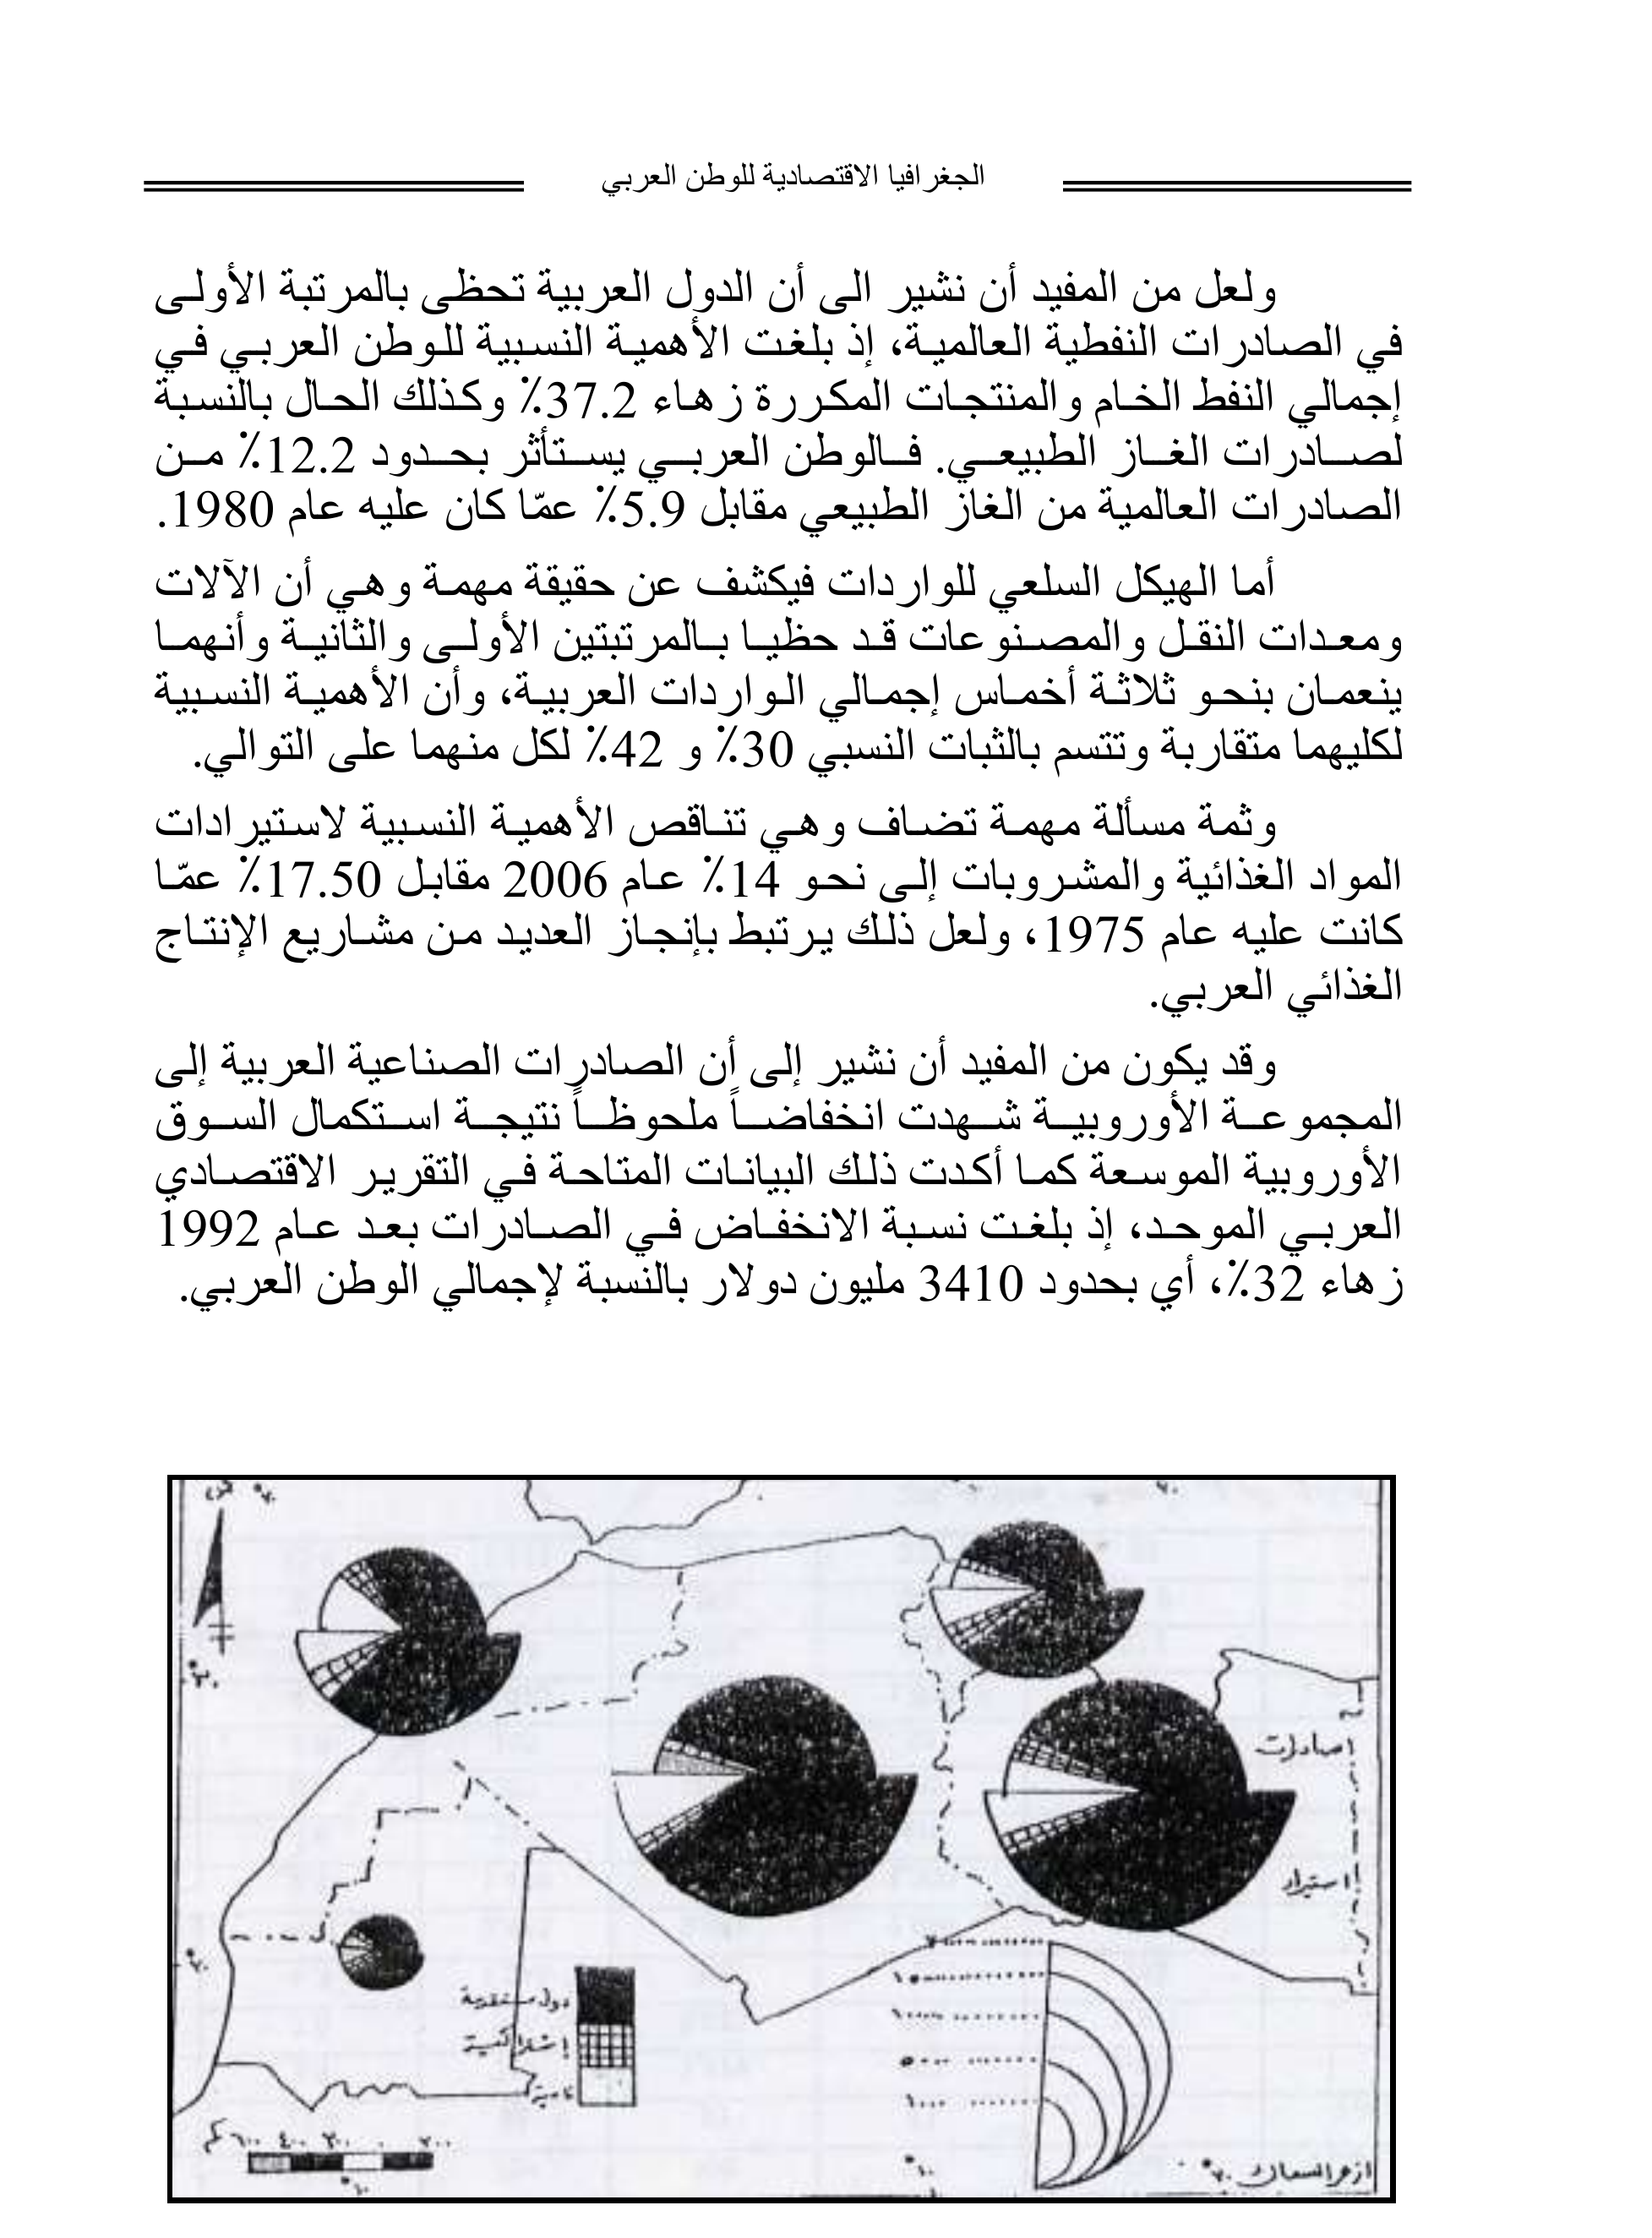 الجغرافيا الاقتصادية للوطن العربي
ولعل من المفيد أن نشير الى أن الدول العربية تحظى بالمرتبة الأولى
في الصادرات النفطية العالمية، إذ بلغت الأهمية النسبية للوطن العربي في
إجمالي النفط الخام والمنتجات المكررة زهاء 37.2٪ وكذلك الحال بالنسبة
لصادرات الغاز الطبيعي. فالوطن العربي يستأثر بحدود 12.2٪ من
الصادرات العالمية من الغاز الطبيعي مقابل 5.9٪ عمّا كان عليه عام 1980.
أما الهيكل السلعي للواردات فيكشف عن حقيقة مهمة وهي أن الآلات
ومعدات النقل والمصنوعات قد حظيا بالمرتبتين الأولى والثانية وأنهما
ينعمان بنحو ثلاثة أخماس إجمالي الواردات العربية، وأن الأهمية النسبية
لكليهما متقاربة وتتسم بالثبات النسبي 30٪ و 42٪ لكل منهما على التوالي.
وثمة مسألة مهمة تضاف وهي تناقص الأهمية النسبية لاستيرادات
المواد الغذائية والمشروبات إلى نحو 14٪ عام 2006 مقابل 17.50٪ عمّا
كانت عليه عام 1975، ولعل ذلك يرتبط بإنجاز العديد من مشاريع الإنتاج
الغذائي العربي.
وقد يكون من المفيد أن نشير إلى أن الصادرات الصناعية العربية إلى
المجموعة الأوروبية شهدت انخفاضاً ملحوظاً نتيجة استكمال السوق
الأوروبية الموسعة كما أكدت ذلك البيانات المتاحة في التقرير الاقتصادي
العربي الموحد، إذ بلغت نسبة الانخفاض في الصادرات بعد عام 1992
زهاء 32٪، أي بحدود 3410 مليون دولار بالنسبة لإجمالي الوطن العربي.
صادرات
استيراد
دول متقدمة
إشتراكية
نامية
كم
ازهر السماك